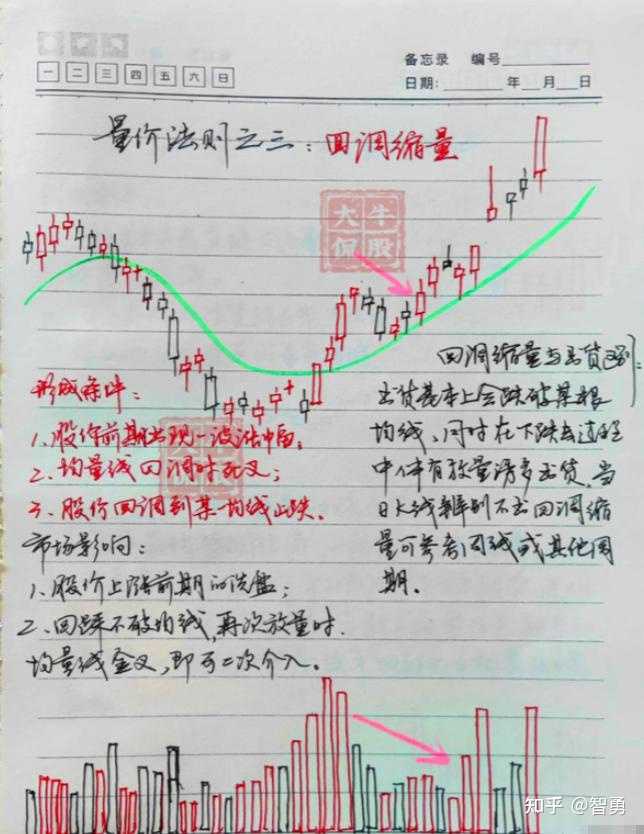 备忘录 编号
一 二 三 四 五 六 日
日期: 年 月 日
量价法则之三：回调缩量
大牛
侃股
回调缩量与出货区别：
形成条件：
出货基本上会跌破某根
1、股价前期出现一波涨幅。
均线，同时在下跌过程
2、均量线回调时死叉；
中伴有放量诱多出货，当
3、股价回调到某均线止跌。
日K线辨别不出回调缩
市场影响：
量可参考周线或其他周
1、股价上涨前期的洗盘；
期。
2、回踩不破均线，再次放量时.
均量线金叉，即可二次介入。
知乎 @智勇